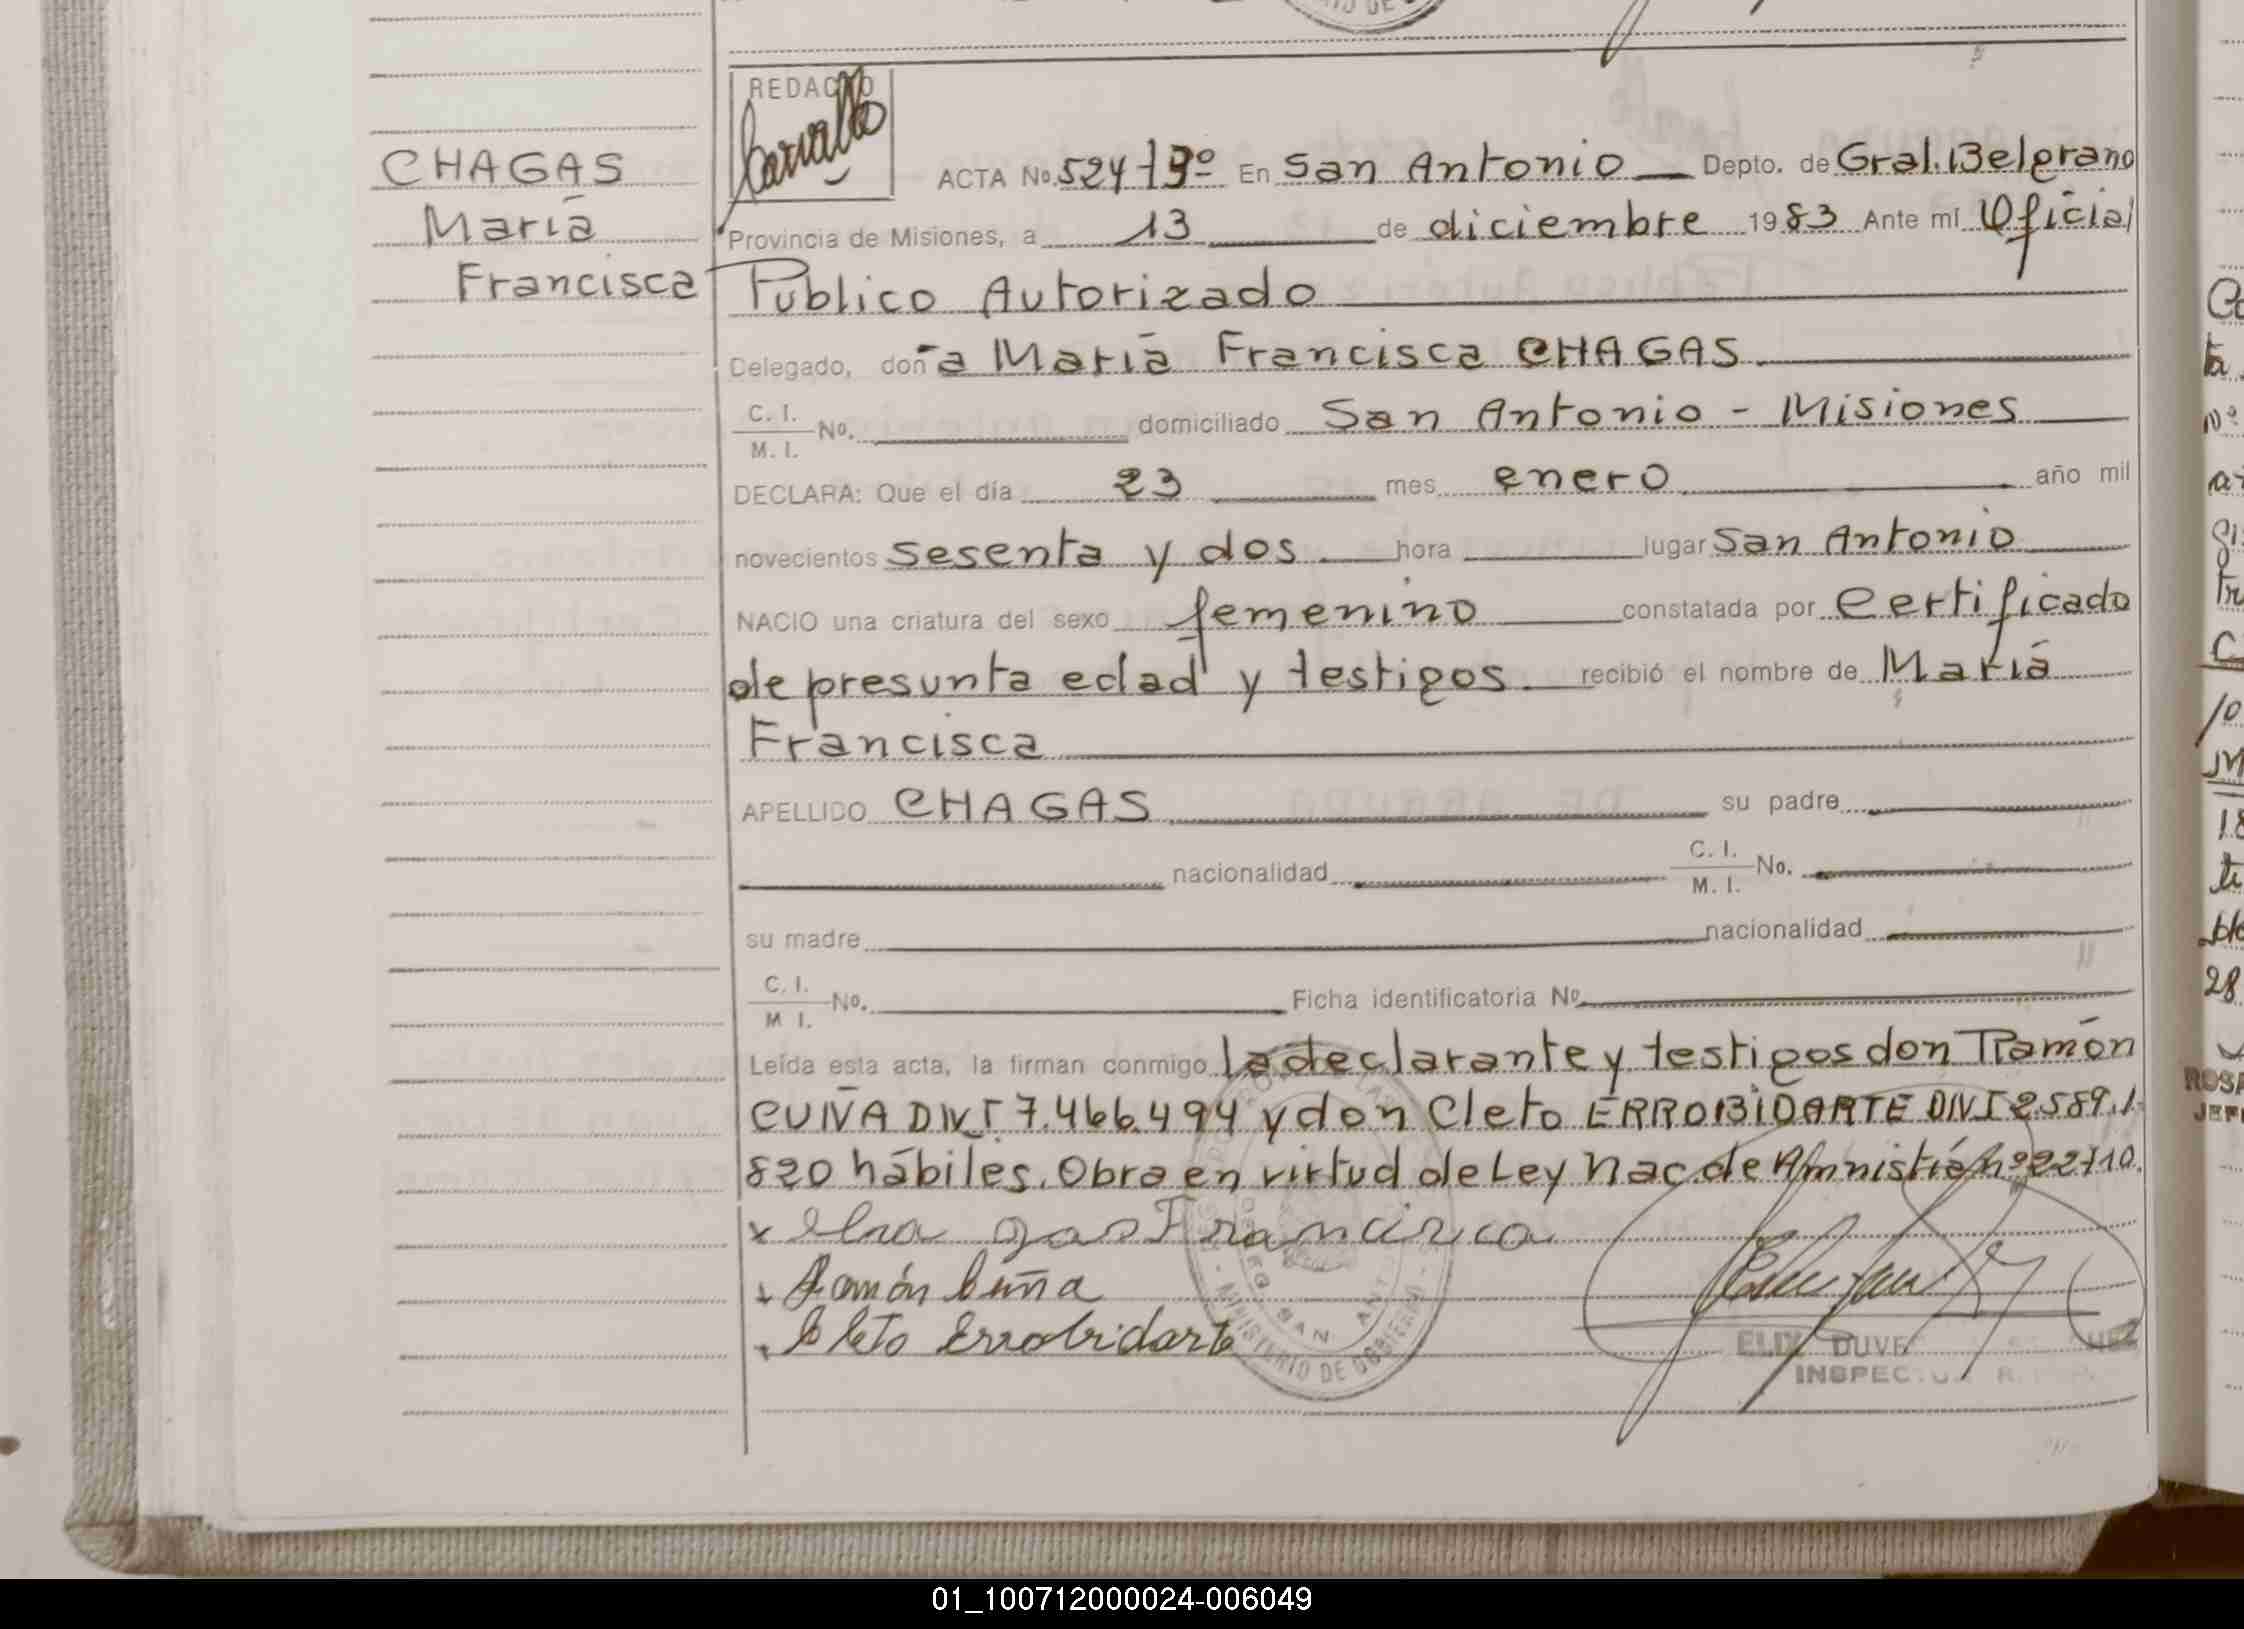 REDACTO
CHAGAS
María
Francisca
ACTA No. 524 T 3º En San Antonio Depto. de Gral. Belgrano
Provincia de Misiones, a 13 de diciembre 1983 Ante mí Oficial
Público Autorizado
Delegado, doña María Francisca CHAGAS
C. I.
M. I. No. domiciliado San Antonio - Misiones
DECLARA: Que el día 23 mes enero año mil
novecientos sesenta y dos hora lugar San Antonio
NACIO una criatura del sexo femenino constatada por Certificado
de presunta edad y testigos recibió el nombre de María
Francisca
APELLIDO CHAGAS su padre
nacionalidad C. I.
M. I. No.
su madre nacionalidad
C. I.
M I. No. Ficha identificatoria Nº
Leída esta acta, la firman conmigo la declarante y testigos don Ramón
CUÑA DNI 7.466.494 y don Cleto ERROBIDARTE DNI 2.589.
820 hábiles. Obra en virtud de Ley Nac. de Amnistía nº 22710.
x gas Francisca
Ramón Cuña
Cleto Errobidarte
SAN ANT
MINISTERIO DE GOBIERNO
ELIX DUVE
INSPEC
ROSA
JEF
01_100712000024-006049